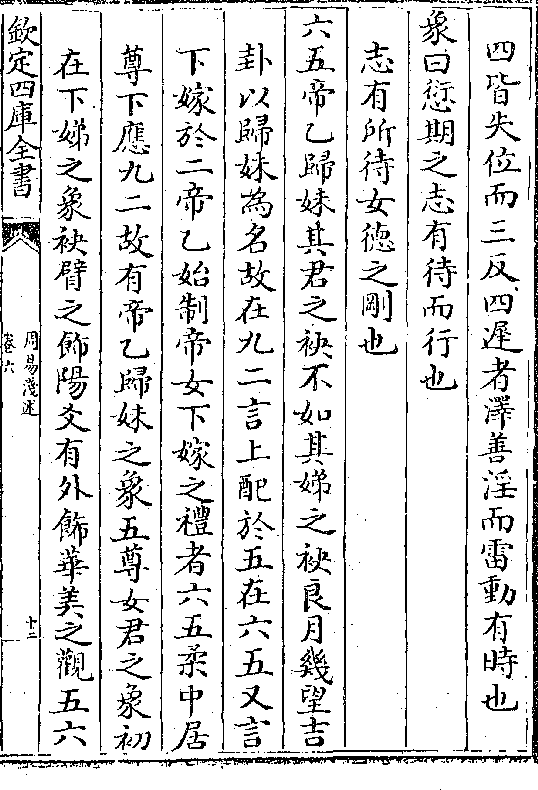 四皆失位而三反四遲者澤善淫而雷動有時也
象曰愆期之志有待而行也
志有所待女德之剛也
六五帝乙歸妹其君之袂不如其娣之袂良月幾望吉
卦以歸妹為名故在九二言上配於五在六五又言
下嫁於二帝乙始制帝女下嫁之禮者六五柔中居
尊下應九二故有帝乙歸妹之象五尊女君之象初
在下娣之象袂臂之飾陽爻有外飾華美之觀五六
欽定四庫全書
周易淺述
卷六
十二